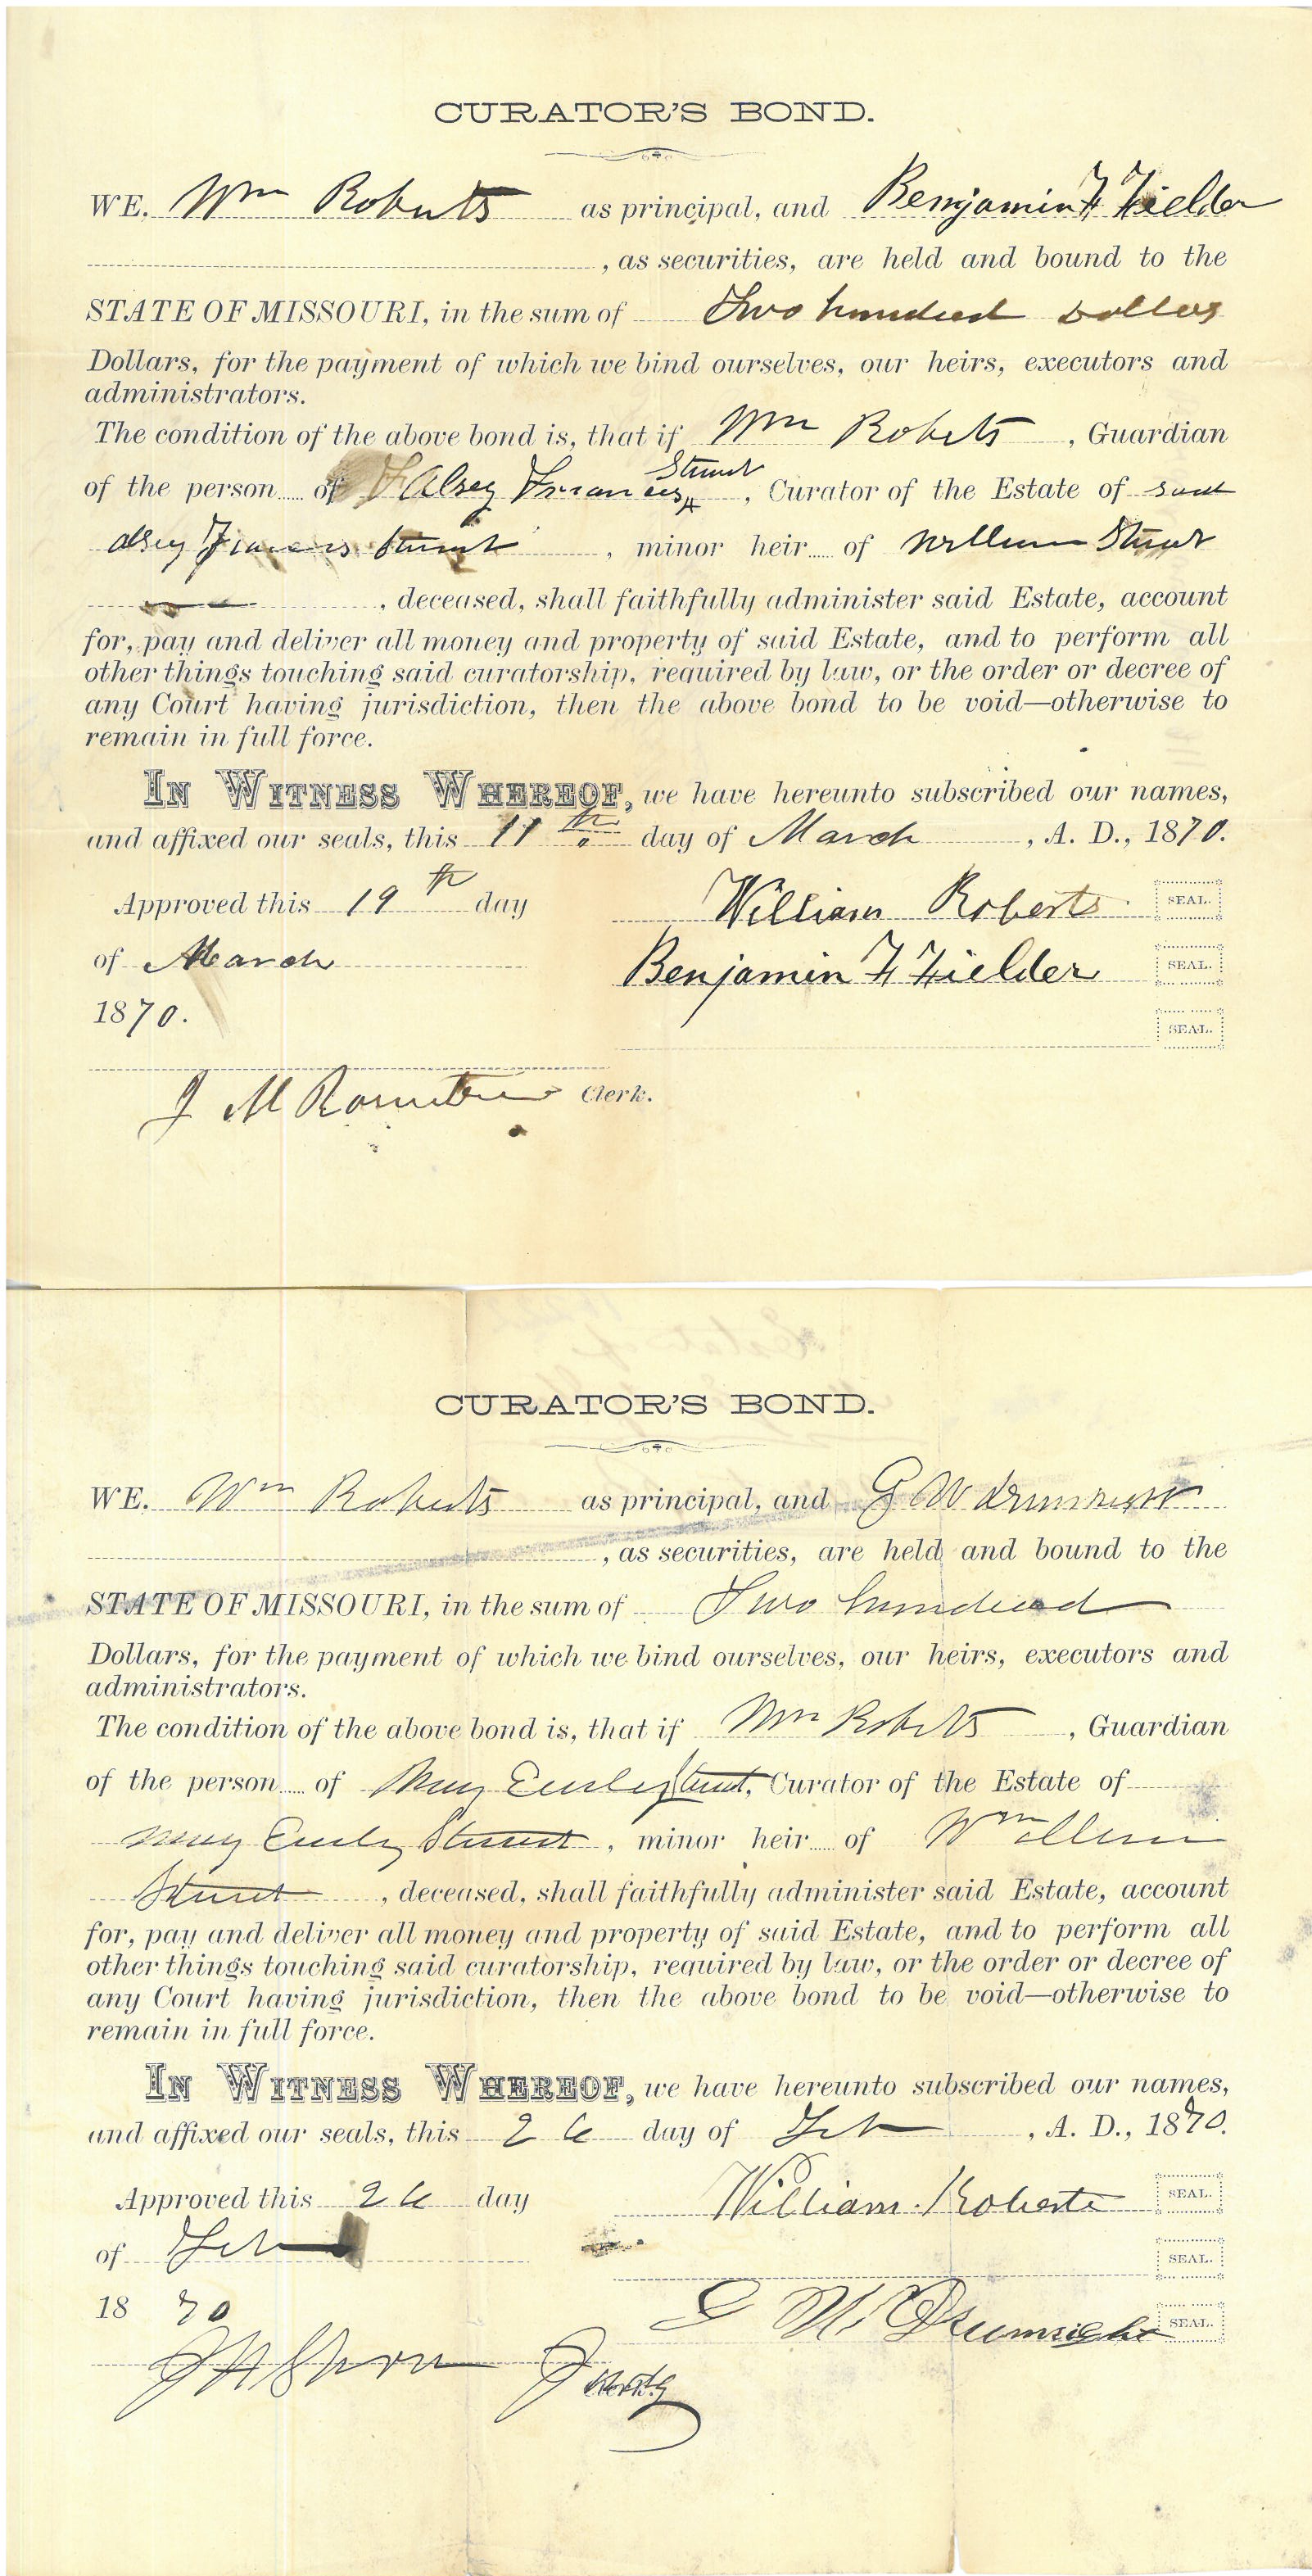 CURATOR'S BOND.
WE, Wm Roberts as principal, and Benjamin F Fielder
, as securities, are held and bound to the
STATE OF MISSOURI, in the sum of Two hundred Dollars
Dollars, for the payment of which we bind ourselves, our heirs, executors and
administrators.
The condition of the above bond is, that if Wm Roberts , Guardian
of the person of Alsey Frances Stuart , Curator of the Estate of said
Alsey Frances Stuart , minor heir of William Stuart
, deceased, shall faithfully administer said Estate, account
for, pay and deliver all money and property of said Estate, and to perform all
other things touching said curatorship, required by law, or the order or decree of
any Court having jurisdiction, then the above bond to be void—otherwise to
remain in full force.
IN WITNESS WHEREOF, we have hereunto subscribed our names,
and affixed our seals, this 11th day of March , A. D., 1870.
Approved this 19th day William Roberts SEAL.
of March Benjamin F Fielder SEAL.
1870. SEAL.
J M Rountree Clerk.
CURATOR'S BOND.
WE, Wm Roberts as principal, and G W Drumright
, as securities, are held and bound to the
STATE OF MISSOURI, in the sum of Two hundred
Dollars, for the payment of which we bind ourselves, our heirs, executors and
administrators.
The condition of the above bond is, that if Wm Roberts , Guardian
of the person of Mary Stuart, Curator of the Estate of
Mary Stuart , minor heir of William
Stuart , deceased, shall faithfully administer said Estate, account
for, pay and deliver all money and property of said Estate, and to perform all
other things touching said curatorship, required by law, or the order or decree of
any Court having jurisdiction, then the above bond to be void—otherwise to
remain in full force.
IN WITNESS WHEREOF, we have hereunto subscribed our names,
and affixed our seals, this 26 day of Feb , A. D., 1870.
Approved this 26 day William Roberts SEAL.
of Feb SEAL.
1870 G W Drumright SEAL.
Judg